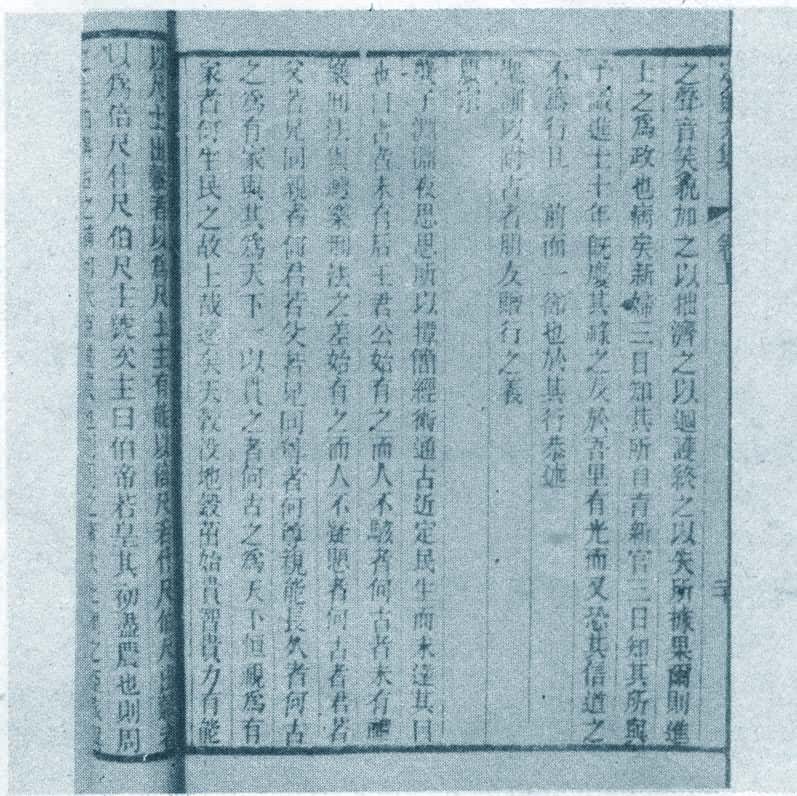 定盦文集 卷上
之聲音笑貌加之以拙濟之以迴護終之以失所據果爾則進
士之爲政也病矣新婦三日知其所自育新官三日知其所與
予識進士十年既慶其祿之及於吾里有光而又恐其信道之
不篤行且一前而一卻也於其行恭述
先訓以附古者朋友贈行之義
農宗
龔子淵淵夜思思所以撢簡經術通古近定民生而未達其目
也曰古者未有后王君公始有之而人不駭者何古者未有禮
樂刑法與禮樂刑法之差始有之而人不疑懼者何古者君若
父若兄同親者何君若父若兄同尊者何尊親能長久者何古
之爲有家與其爲天下一以貫之者何古之爲天下恒視爲有
家者何生民之故上哉遠矣天穀沒地穀茁始貴智貴力有能
以尺土出穀者以爲尺土主有能以倍尺若什尺伯尺出穀者
以爲倍尺什尺伯尺主號次主曰伯帝若皇其初盡農也則周